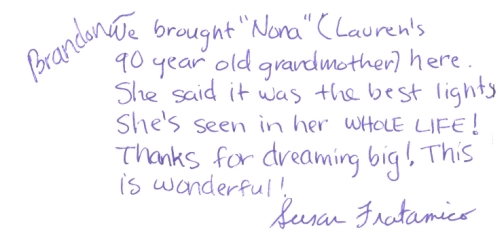 Brandon - We brought "Nona" (Lauren's
90 year old grandmother) here.
She said it was the best lights
She's seen in her WHOLE LIFE!
Thanks for dreaming big! This
is wonderful!
Susan Fratamico